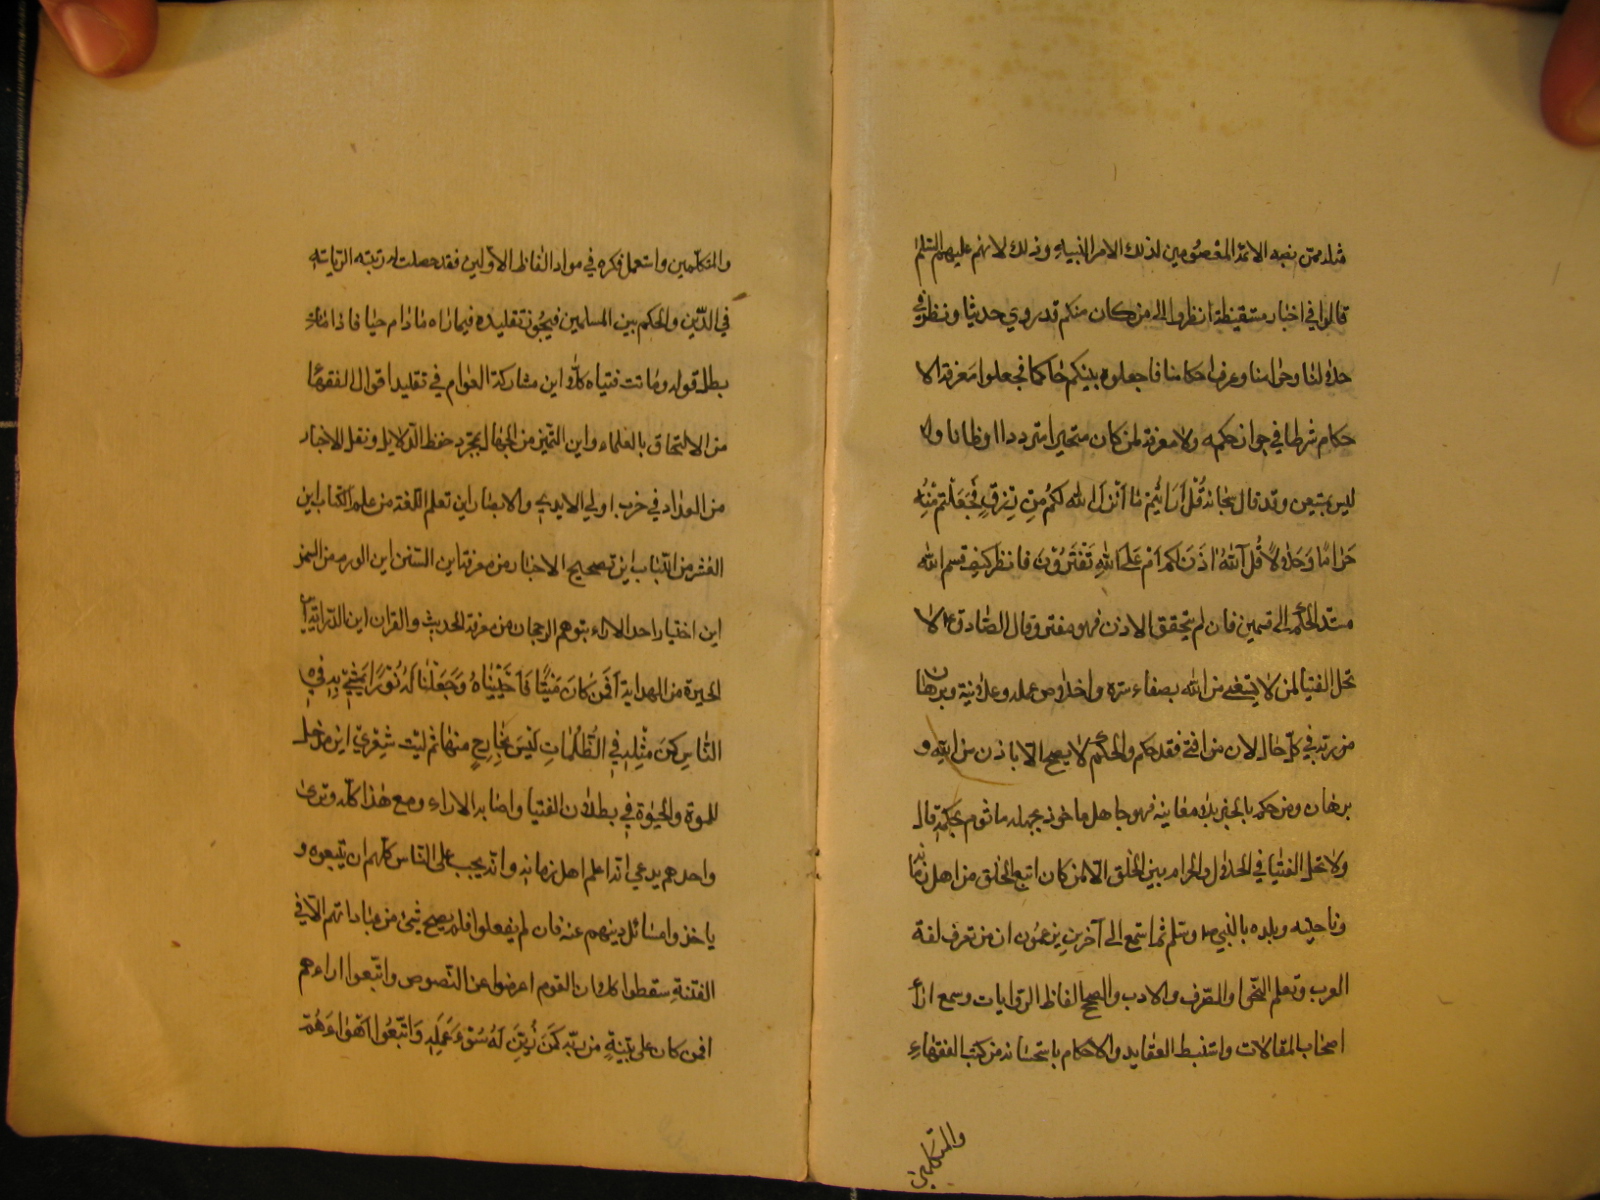 مثله ممن نصبه الائمة المعصومين لذلك الامر النبيه وذلك لانهم عليهم السلم
قالوا في اخبار مستفيظة انظروا الى من كان منكم قد روي حديثا ونظر في
حلالنا وحرامنا وعرف احكامنا فاجعلوه بينكم حاكما فجعلوا معرفة الا
حكام شرطا في جواز حكمه ولا معرفة لمن كان متحيرا مترددا او ظانا ولا
ليس بمتيقن وقد قال سبحانه قُلْ اَرَاَيْتُمْ مٰا اَنْزَلَ الله لَكُمْ مِنْ رِزْقٍ فَجَعَلْتُمْ مِنْهُ
حَرٰامًا وَحَلٰالًا قُلْ آللهُ اَذِنَ لَكُمْ اَمْ عَلَى اللهِ تَفْتَرُوْنَ فانظر كيف قسم الله
مستند الحكم الى قسمين فان لم يتحقق الاذن فهو مفتر وقال الصادق ع لا
تحل الفتيا لمن لا يستفتي من الله بصفاء سره واخلاص عمله وعلانيته وبرهان
من ربه في كل حال لان من افتى فقد حكم والحكم لا يصح الا باذن من الله و
برهان ومن حكم بالخبر بلا معاينه فهو جاهل ماخوذ بجهله ماثوم بحكمه قال
ولا تحل الفتيا في الحلال والحرام بين الخلق الا لمن كان اتبع الخلق من اهل زمانه
وناحيته وبلده بالنبي ص وسلم ثم استمع الى آخرين يزعمون ان من تعرف لغة
العرب وتعلم النحو والصرف والادب والصحح الفاظ الروايات وسمع اراء
اصحاب المقالات واستنبط العقايد والاحكام باستحسانه من كتب الفقهاء
والمتكلمين
والمتكلمين واستعمل فكره في مواد الفاظ الاولين فقد حصلت له رتبة الرياسة
في الدين والحكم بين المسلمين فيجوز تقليده فيما راه مادام حيا فاذا مات
بطل قوله وماتت فتياه كلا اين مشاركة العوام في تقليد اقوال الفقهاء
من الالتحاق بالعلماء واين التميز من الجهال بمجرد حفظ الدلايل ونقل الاخبار
من العداد في حزب اولي الايدي والابصار اين تعلم اللغة من علم الكتاب اين
القشر من اللباب اين تصحيح الاخبار من معرفة اين السنن اين الورم من السمن
اين اختيار احد الاراء بتوهم الرجحان من معرفة الحديث والقران اين الدراية اين
الحيرة من الهداية اَفَمَنْ كَانَ مَيْتًا فَاَحْيَيْنٰاهُ وَجَعَلْنٰا لَهُ نُوْرًا يَمْشِيْ بِهِ فِي
النّاسِ كَمَنْ مَثَلُهُ فِي الظُّلُمٰاتِ لَيْسَ بِخٰارِجٍ مِنْهٰا ثم ليت شعري اين مدخل
للموة والحيوة في بطلان الفتيا واصابه الاراء ومع هذا كله وترى
واحدهم يدعي انه اعلم اهل زمانه وانه يجب على الناس كلهم ان يتبعوه و
ياخذوا مسائل دينهم عنه فان لم يفعلوا فلم يصح شئ من عباداتهم الا في
الفتنة سقطوا كلا ان القوم اعرضوا عن النصوص واتبعوا اراءهم
افمن كان على بَيِّنَةٍ من ربه كَمَنْ زُيِّنَ لَهُ سُوْءُ عَمَلِهِ وَاتَّبَعُوْا اَهْوٰاءَهُمْ